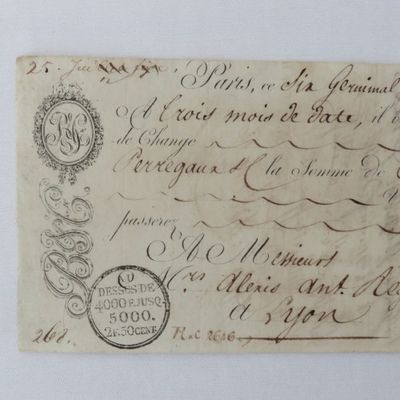 25. Juin
Paris, ce Six Germinal
A trois mois de date, il v
de Change
Perregaux &C la Somme de
passerez
A Messieurs
Mrs Alexis Ant. Reg
à Lyon
DESSUS DE
4000 F. JUSQ.
5000.
2F.50 CENT.
268.
R.C 2646